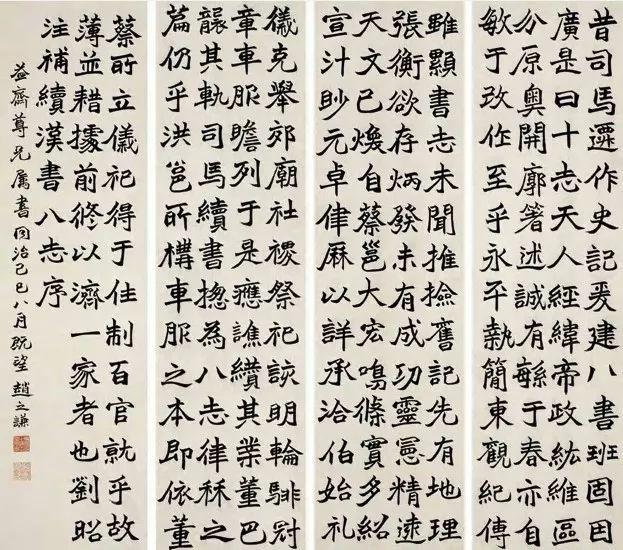 昔司馬遷作史記爰建八書班固因
廣是曰十志天人經緯帝政紘維區
分原奧開廓箸述誠有繇于春亦自
敏于改作至乎永平執簡東觀紀傳
雖顯書志未聞推撿舊記先有地理
張衡欲存炳發未有成功靈憲精遠
天文已煥自蔡邕大宏鳴條實多紹
宣汁眇元卓律厤以詳承洽伯始礼
儀克舉郊廟社禝祭祀該明輪騑冠
章車服贍列于是應譙纘其業董巴
襲其軌司馬續書揔為八志律秝之
篇仍乎洪邕所構車服之本即依董
蔡所立儀祀得于往制百官就乎故
薄並藉據前修以濟一家者也劉昭
注補續漢書八志序
益齋尊兄屬書同治己巳八月既望 趙之謙